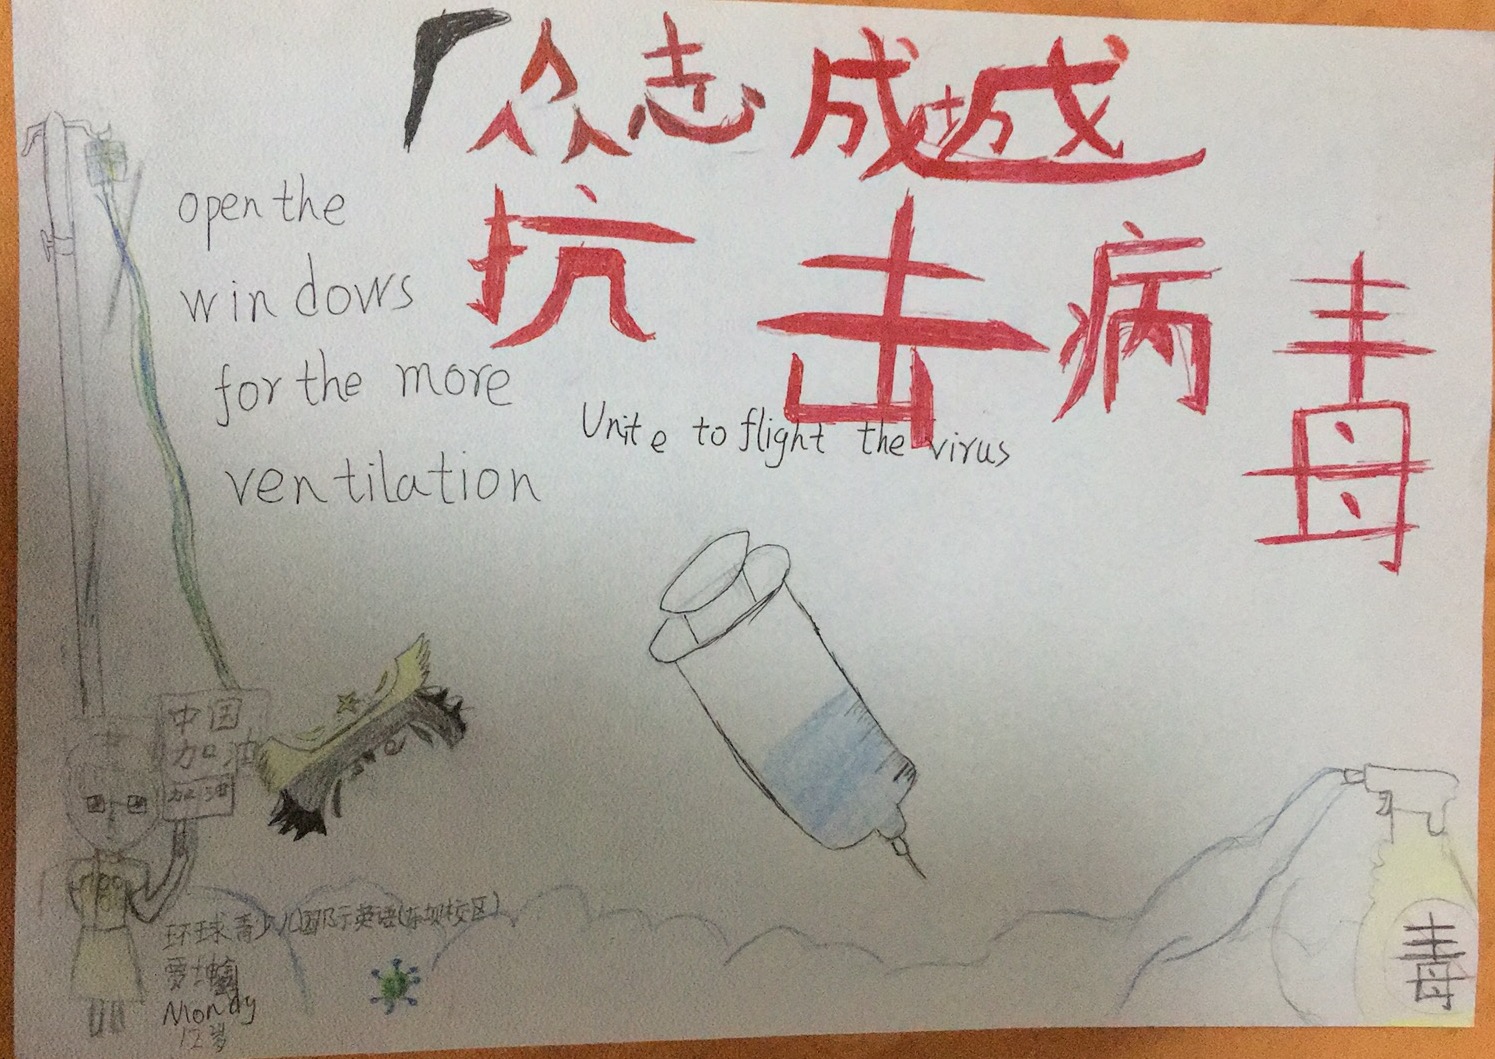 众志成城
抗击病毒
open the
windows
for the more
ventilation
Unite to flight the virus
中国
加油
加油
环球青少儿国际英语(东坝校区)
贾坤
Mondy
12岁
毒